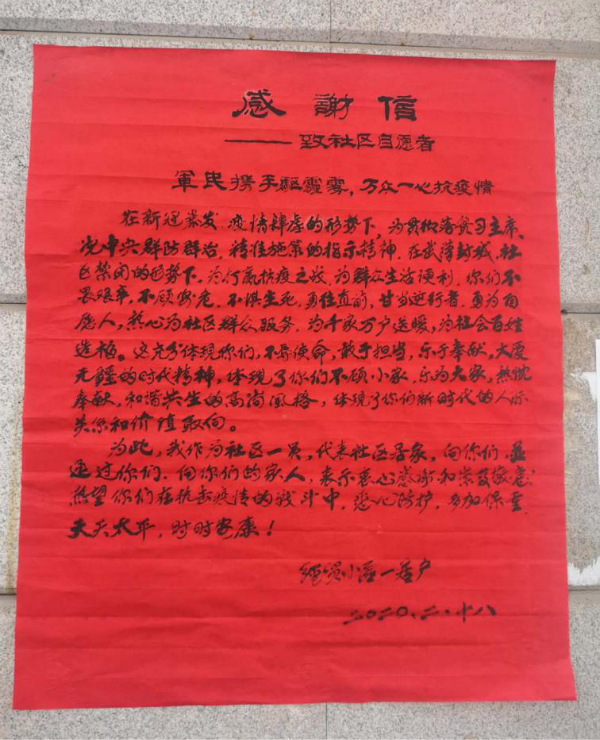 感謝信
——致社区自愿者
軍民携手驅霾雾，万众一心抗疫情
在新冠暴发，疫情肆虐的形势下，为贯彻落实习主席、
党中央群防群治，精准施策的指示精神，在武汉封城，社
区禁闭的形势下，为打赢抗疫之战，为群众生活便利，你们不
畏艰辛，不顾安危，不惧生死，勇往直前，甘当逆行者，勇为自
愿人，热心为社区群众服务，为千家万户送暖，为社会百姓
造福。这充分体现你们，不辱使命，敢于担当，乐于奉献，大爱
无疆的时代精神，体现了你们不顾小家，乐为大家，热忱
奉献，和谐共生的高尚风格，体现了你们新时代的人际
关系和价值取向。
为此，我作为社区一员，代表社区居家，向你们，并
通过你们，向你们的家人，表示衷心感谢和崇高敬意
热望你们在抗击疫情的战斗中，悉心防护，多加保重，
天天太平，时时安康！
小区一居户
二〇二〇、二、十八